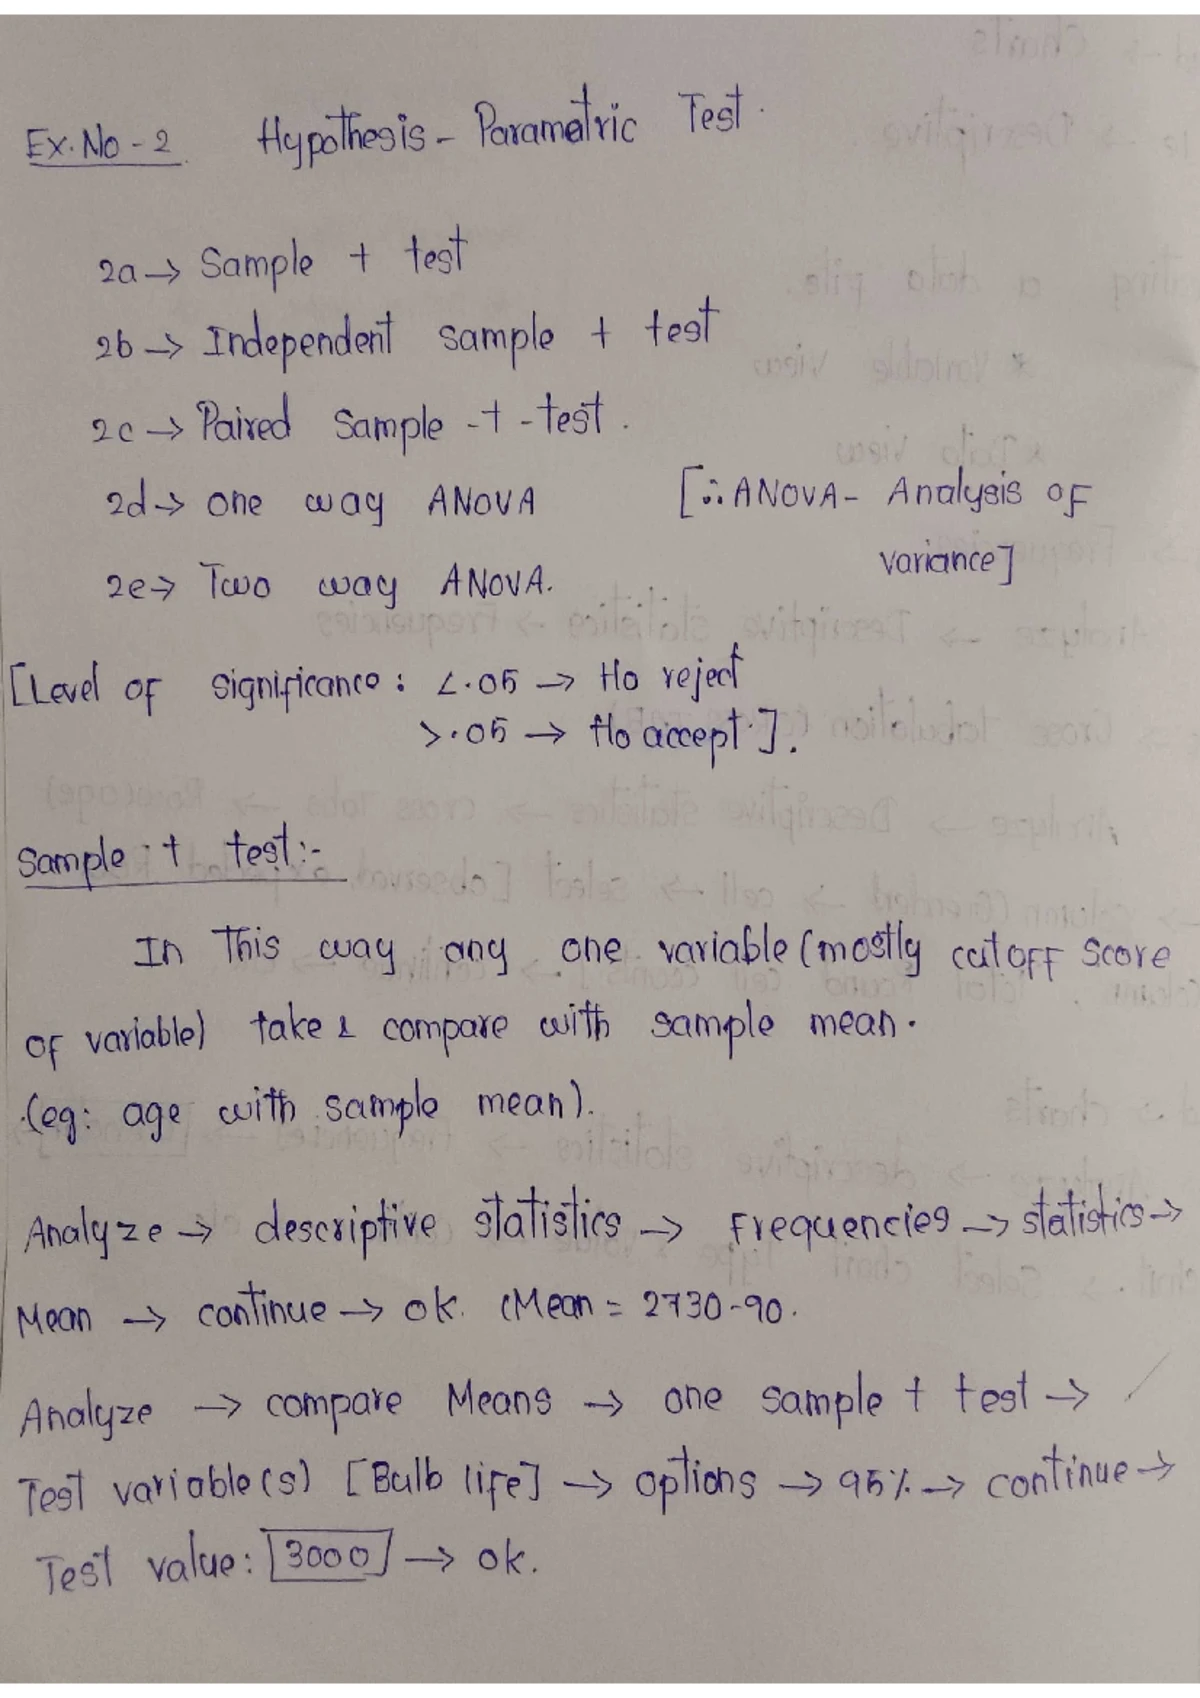 Ex. No - 2 Hypothesis - Parametric Test.
2a → Sample t test
2b → Independent sample t test
2c → Paired Sample - t - test.
2d → one way ANOVA [∴ ANOVA - Analysis of
variance]
2e → Two way ANOVA.
[Level of significance : <.05 → Ho reject
>.05 → Ho accept].
Sample t test:-
In This way any one variable (mostly cut off Score
of variable) take & compare with sample mean.
(eg: age with sample mean).
Analyze → descriptive statistics → Frequencies → statistics →
Mean → continue → ok. (Mean = 2730-90.
Analyze → compare Means → one sample t test →
Test variable(s) [Bulb life] → options → 95% → continue →
Test value: [3000] → ok.